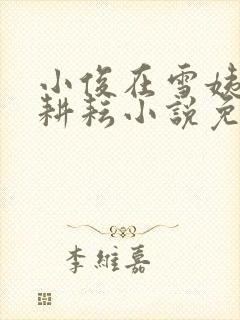 小俊在雪姨
耕耘小說免
李維嘉